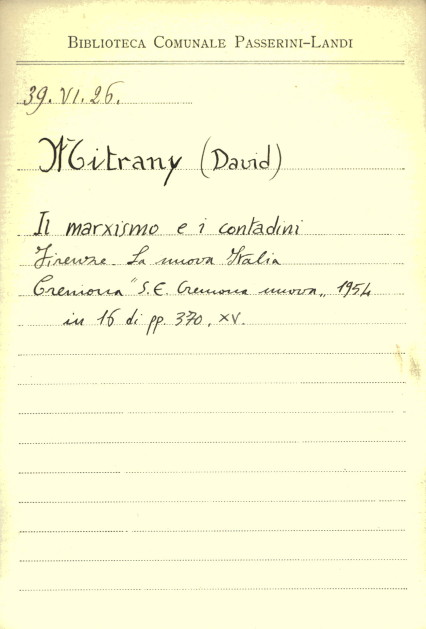 BIBLIOTECA COMUNALE PASSERINI-LANDI
39. VI. 26.
Mitrany (David)
Il marxismo e i contadini
Firenze. La nuova Italia
Cremona "S.E. Cremona nuova„ 1954
in 16 di pp. 370, XV.